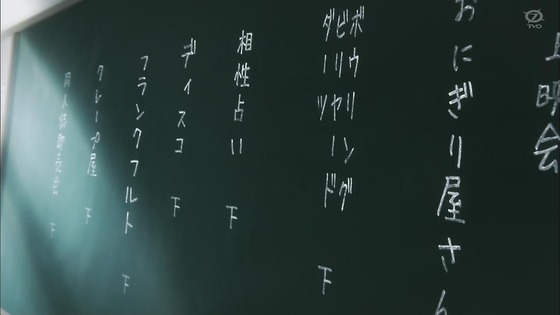 上映会
おにぎり屋さん
ボウリング
ビリヤード
ダーツ
下
相性占い 下
ディスコ 下
フランクフルト 下
クレープ屋 下
同人誌即売会 下
TVO